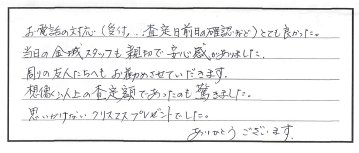 お電話の対応(受付、査定日前日の確認など)とても良かった。
当日の金城スタッフも親切で安心感がありました。
周りの友人たちへもお勧めさせていただきます。
想像以上の査定額であったのも驚きました。
思いがけないクリスマスプレゼントでした。
ありがとうございます。